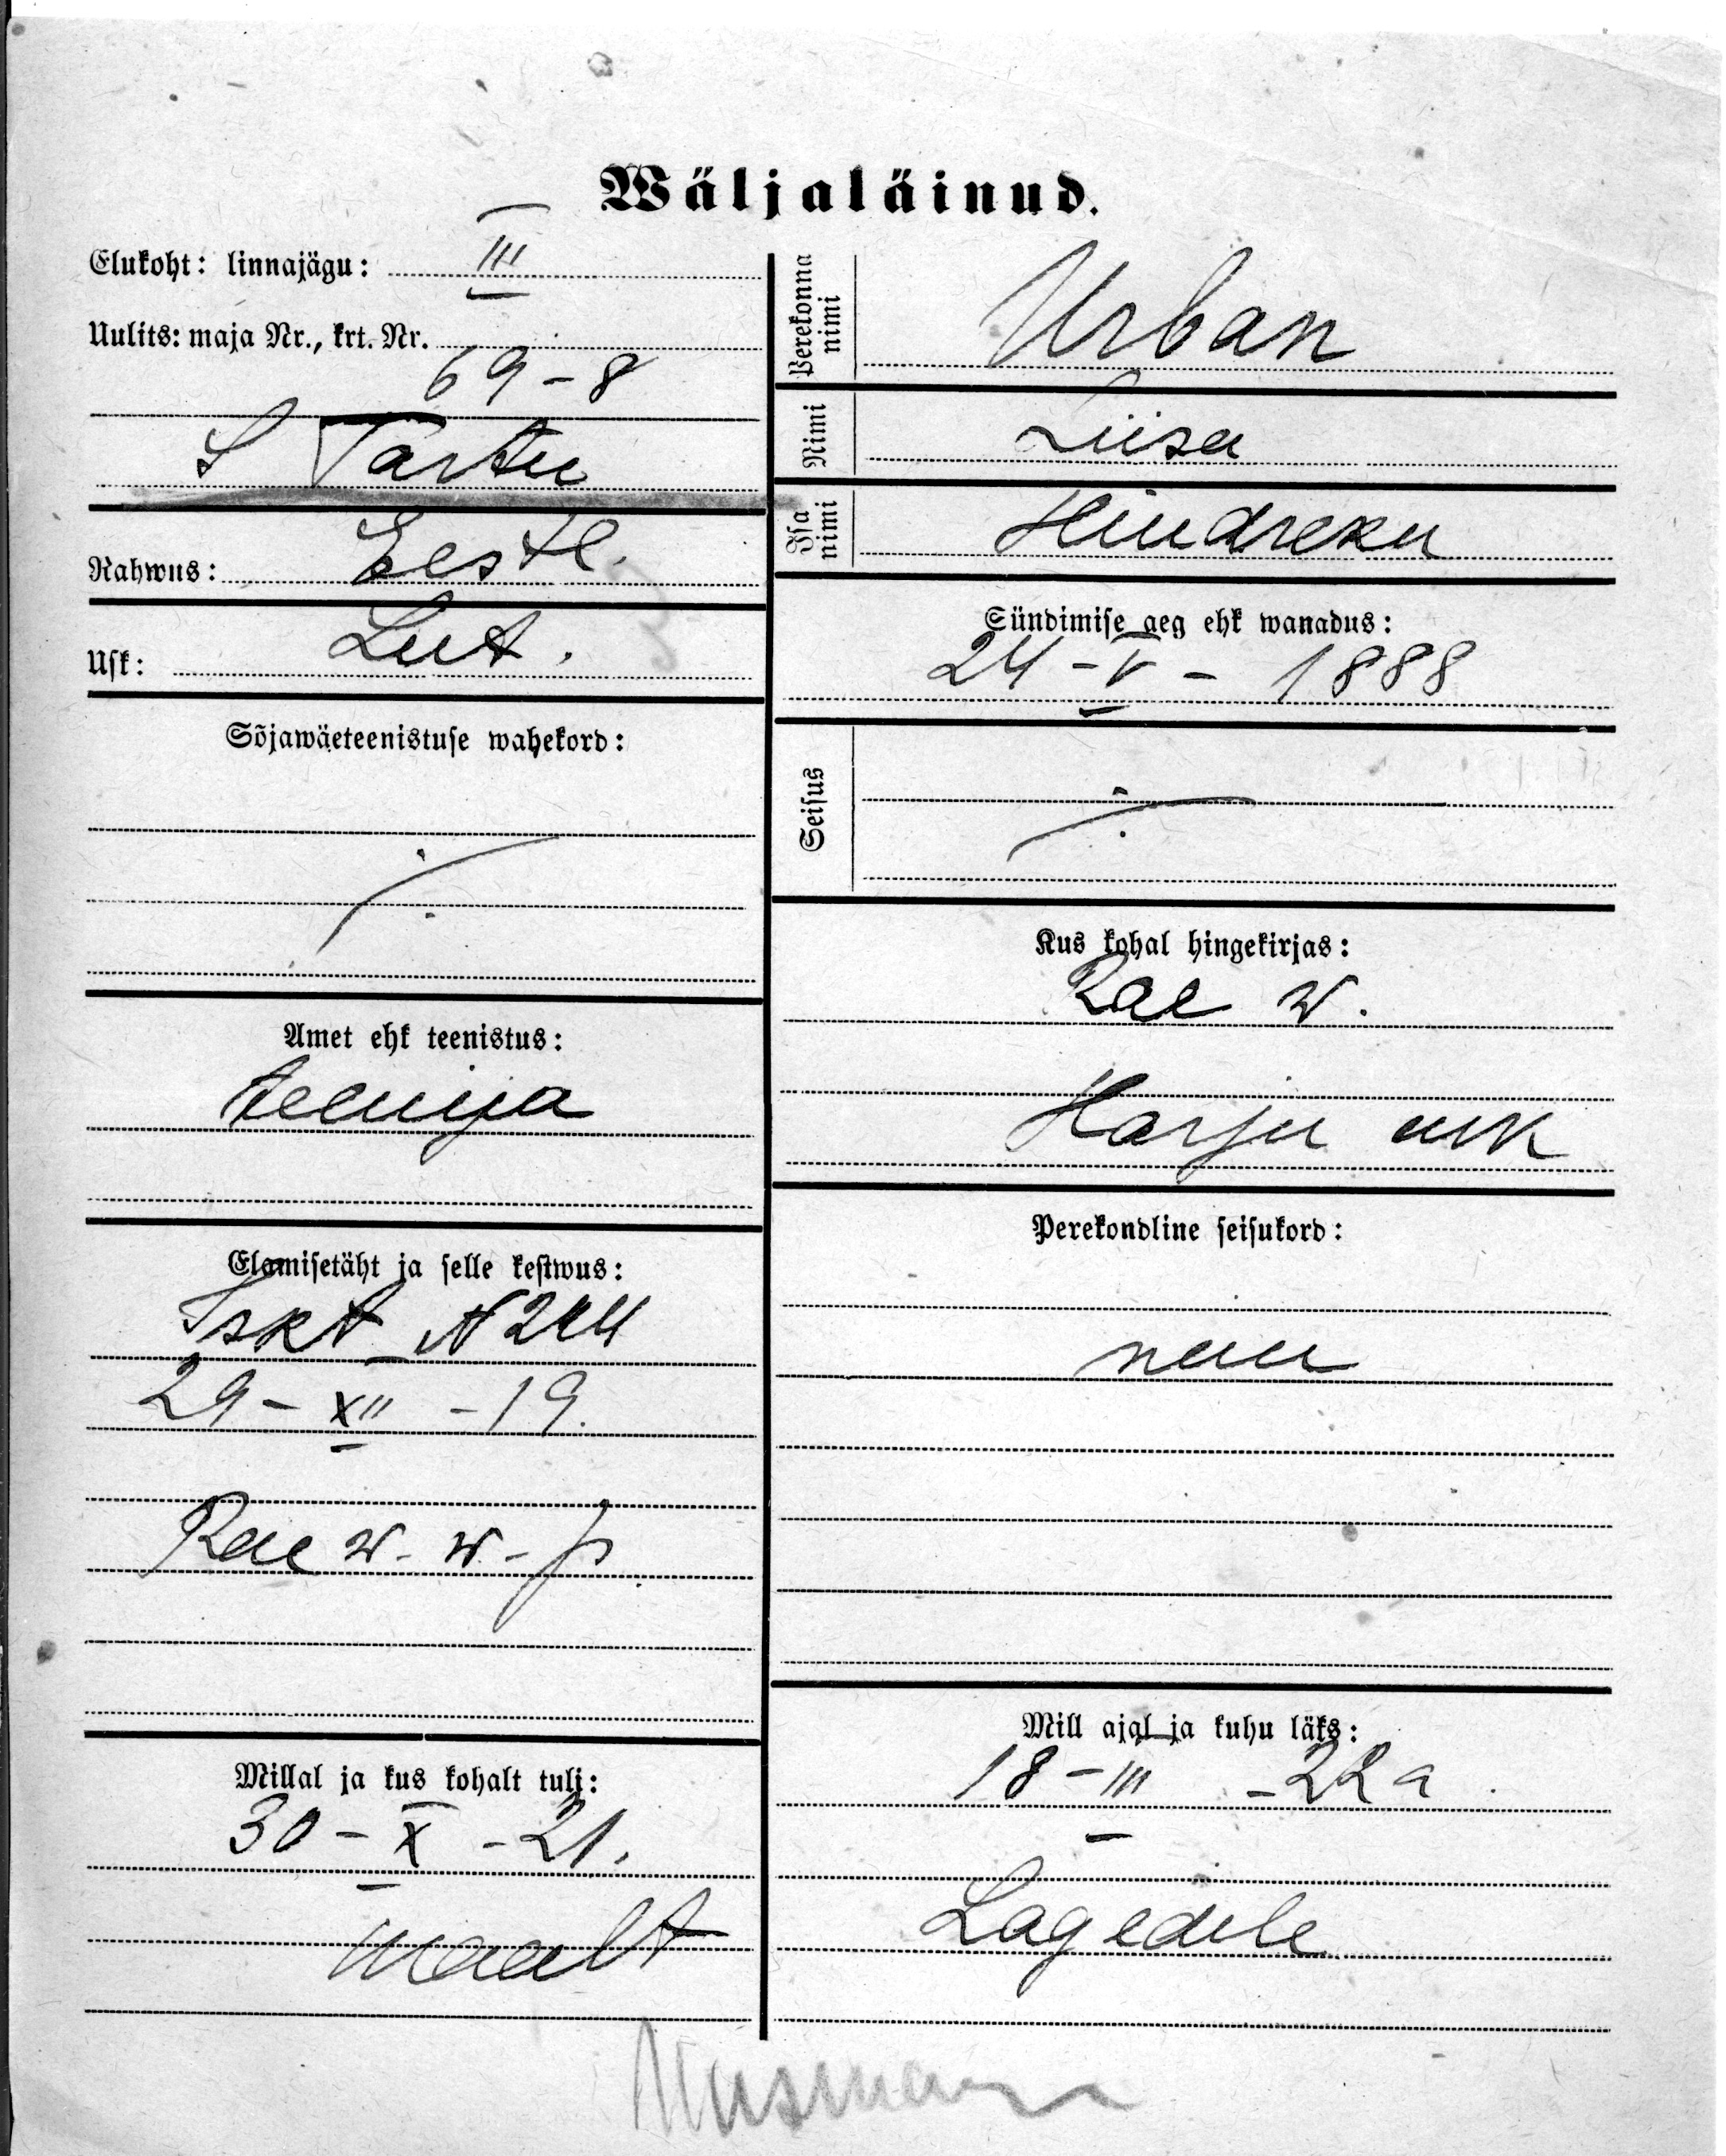 Wäljaläinud.
Elukoht: linnajägu: III
Uulits: maja Nr., krt. Nr.
69 - 8
S Tartu
Rahwus: Eestl.
Usk: Lut.
Sõjawäeteenistuse wahekord:
Amet ehk teenistus:
teenija
Elamisetäht ja selle kestwus:
Iskt N 244
29 - XII - 19.
Rae w. w - p
Millal ja kus kohalt tuli:
30 - X - 21.
maalt
Perekonna nimi Urban
Nimi Liisa
Isa nimi Hindreku
Sündimise aeg ehk wanadus:
24 - V - 1888
Seisus
Kus kohal hingekirjas:
Rae w.
Harju mk
Perekondline seisukord:
neiu
Mill ajal ja kuhu läks:
18 - III - 22 a.
Lagedile